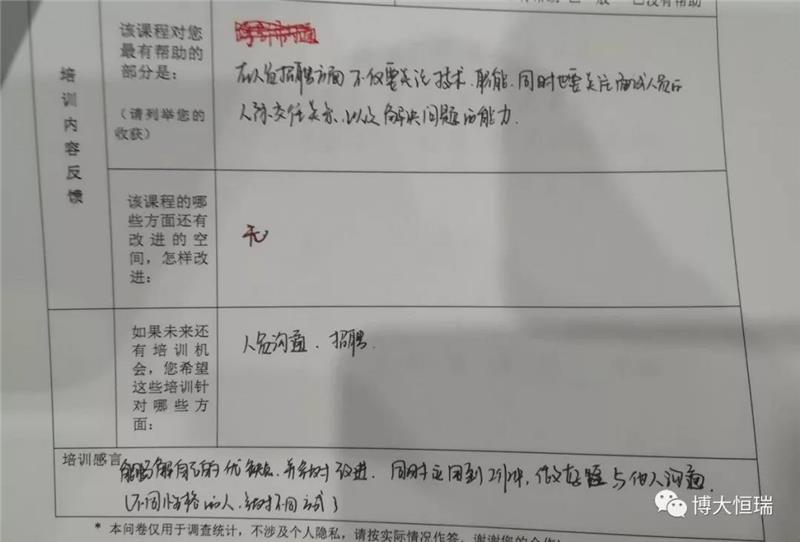 一般 □没有帮助
培训内容反馈
该课程对您
最有帮助的
部分是:
(请列举您的
收获)
在人员招聘方面不仅要关注技术、职能,同时也要关注面试人员的
人际交往关系,以及解决问题的能力.
该课程的哪
些方面还有
改进的空
间,怎样改
进:
无
如果未来还
有培训机
会,您希望
这些培训针
对哪些方
面:
人员沟通、招聘.
培训感言
解自己的优缺点,并针对改进.同时应用到工作中,与他人沟通.
(不同性格的人,针对不同方式)
* 本问卷仅用于调查统计,不涉及个人隐私,请按实际情况作答。谢谢您的合作
博大恒瑞